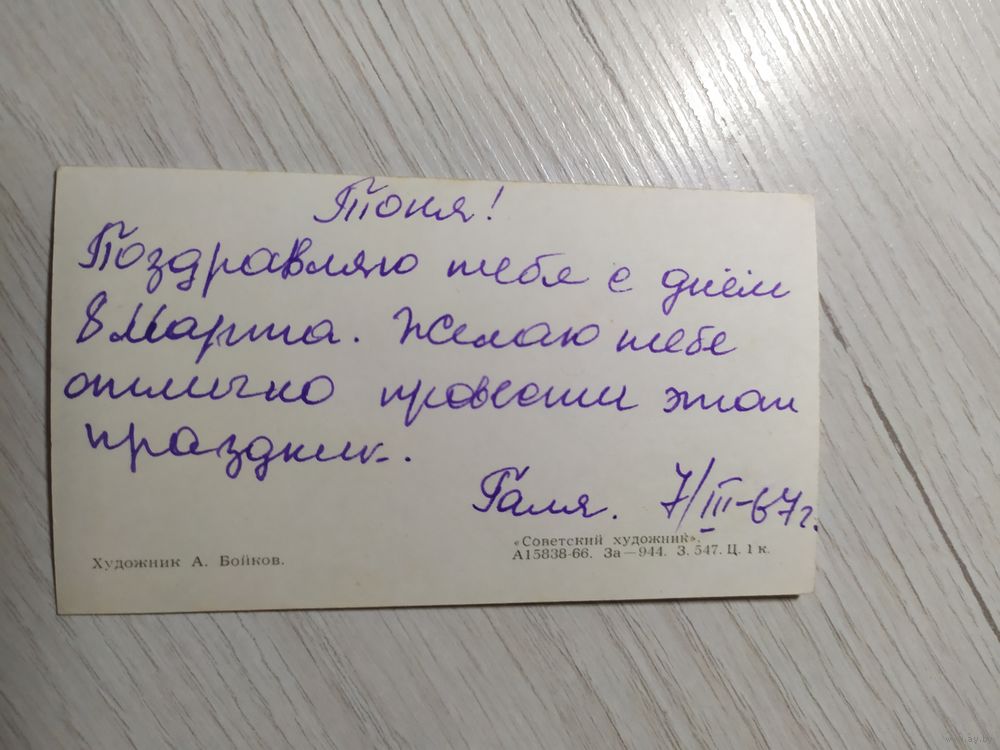 Тоня!
Поздравляю тебя с днём
8 Марта. Желаю тебе
отлично провести этот
праздник.
Галя. 7/III-67г.
Художник А. Бойков.
«Советский художник».
А15838-66. За—944. З. 547. Ц. 1 к.
www.ay.by